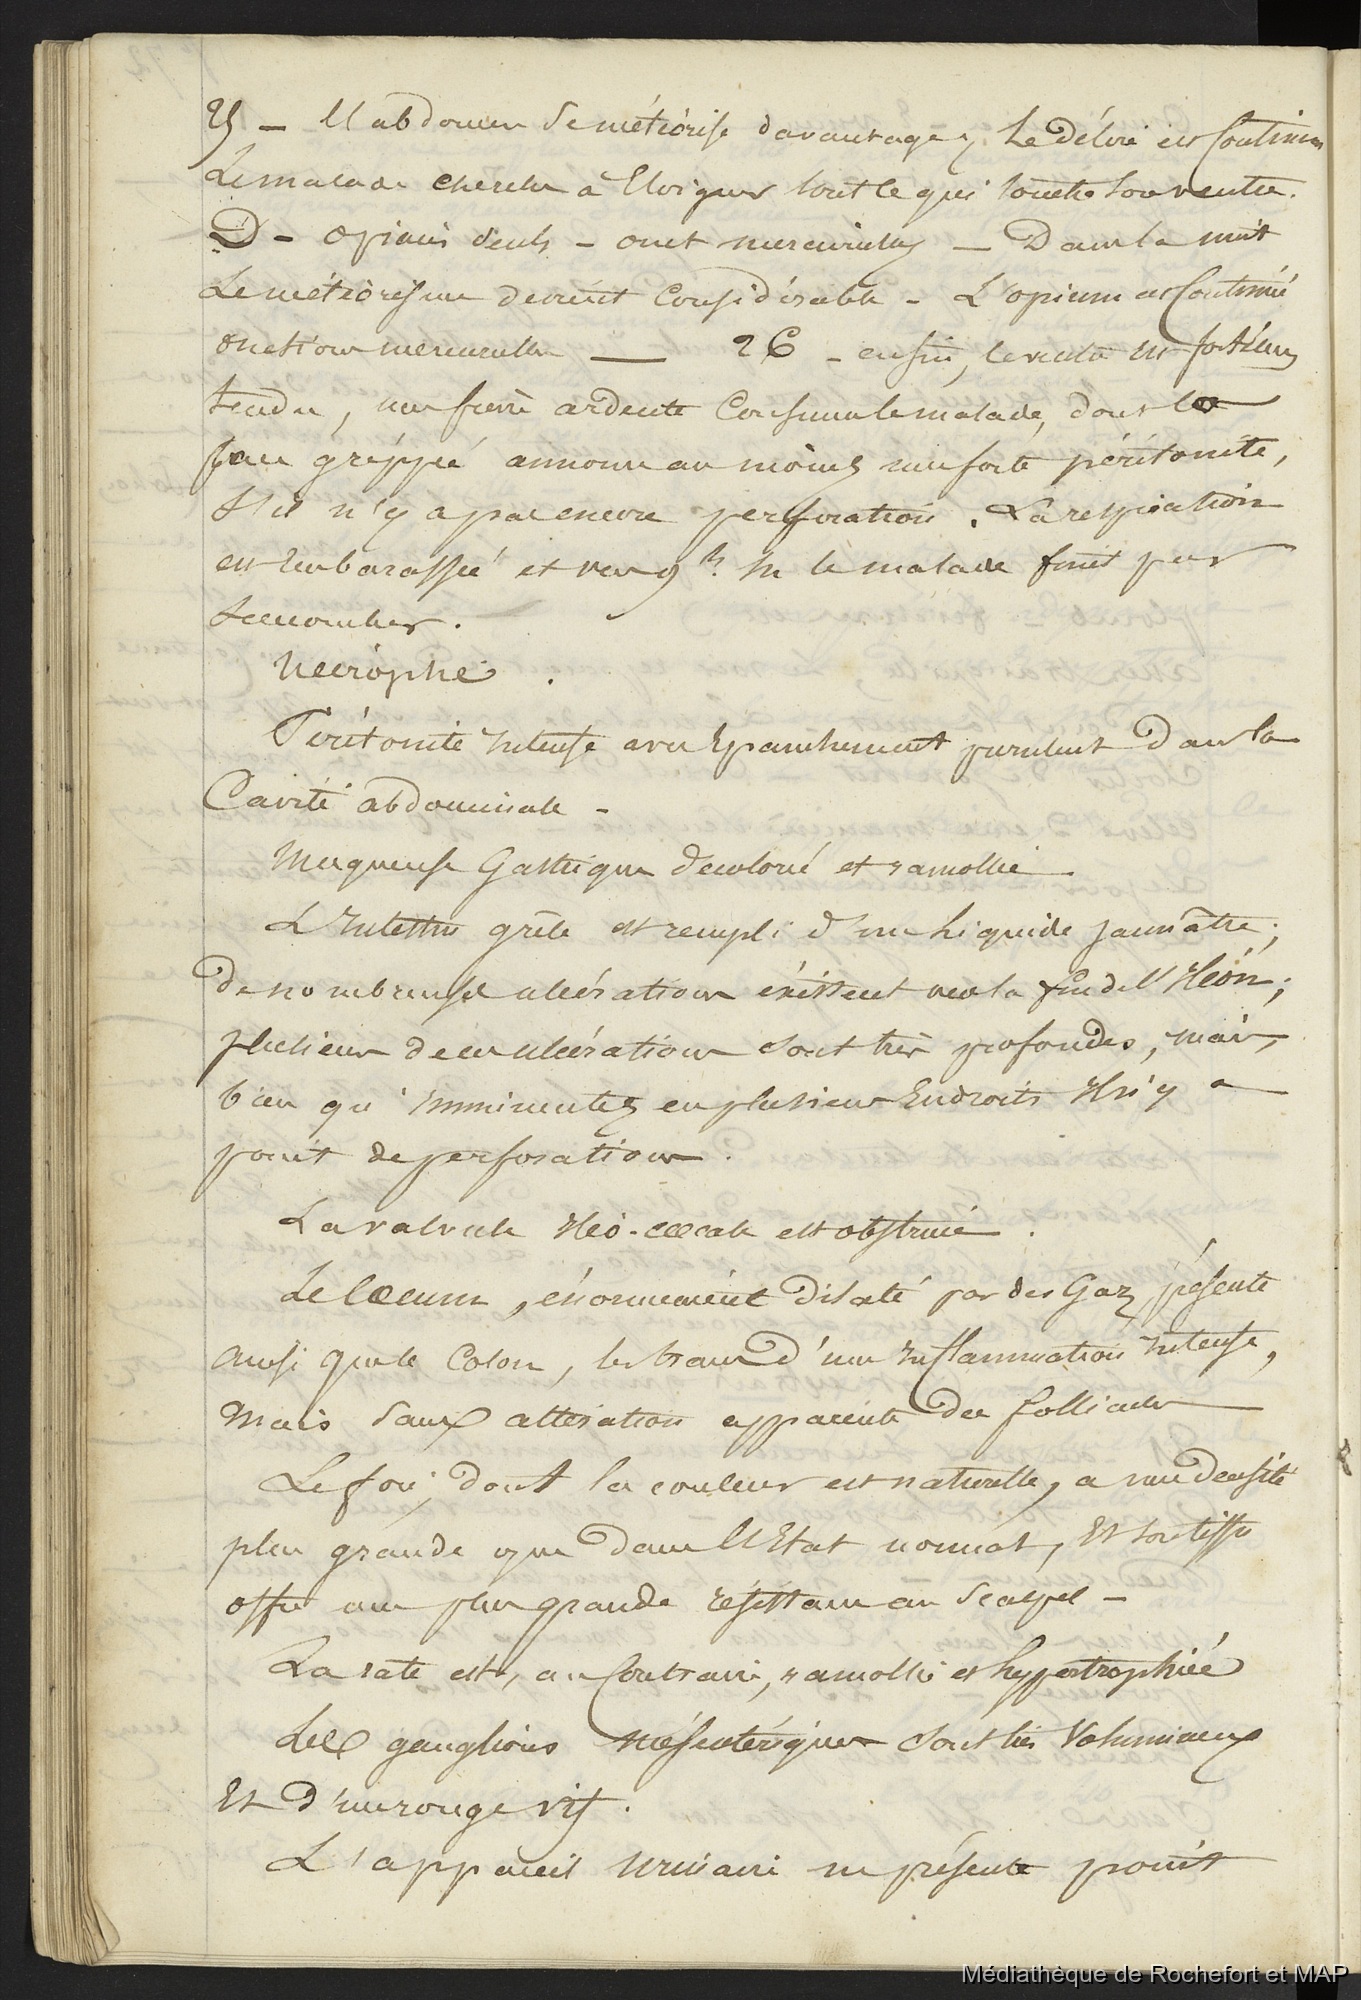 25 — L'abdomen se météorise davantage, le délire est continu
Le malade cherche à Eloigner tout ce qui touche son ventre.
D — opium seul — onct mercurielles — Dans la nuit
Le météorisme devient Considérable — L'opium est Continué
onctions mercurielles — 26 — enfin, le ventre est fort
tendu, une fièvre ardente Consume le malade, dont la
face grippée annonce au moins une forte péritonite,
s'il n'y a pas encore perforation. La respiration
est Embarassée et vers 9 h. le malade finit par
succomber.
Nécrophie.
Péritonite Intense avec Epanchement purulent Dans la
Cavité abdominale —
Muqueuse Gastrique décolorée et ramollie.
L'Intestin grêle est rempli d'un Liquide jaunâtre;
de nombreuses ulcérations existent vers la fin de l'Iléon;
plusieurs de ces ulcérations sont très profondes, mais,
bien qu'Imminentes en plusieurs Endroits Il n'y a
point de perforations.
La valvule Iléo-cœcale est obstruée.
Le Cœcum, énormément Dilaté par des Gaz, présente
ainsi que le Colon, les traces d'une Inflammation Intense,
Mais sans altération apparente des follicules
Le foie, dont la couleur est naturelle, a une densité
plus grande que dans l'Etat normal, Et son tissu
offre une plus grande résistance au Scalpel —
La rate est, au Contraire, ramollie et hypertrophiée
Les ganglions mésentériques sont très Volumineux
Et d'un rouge vif.
L'appareil urinaire ne présente point
Médiathèque de Rochefort et MAP